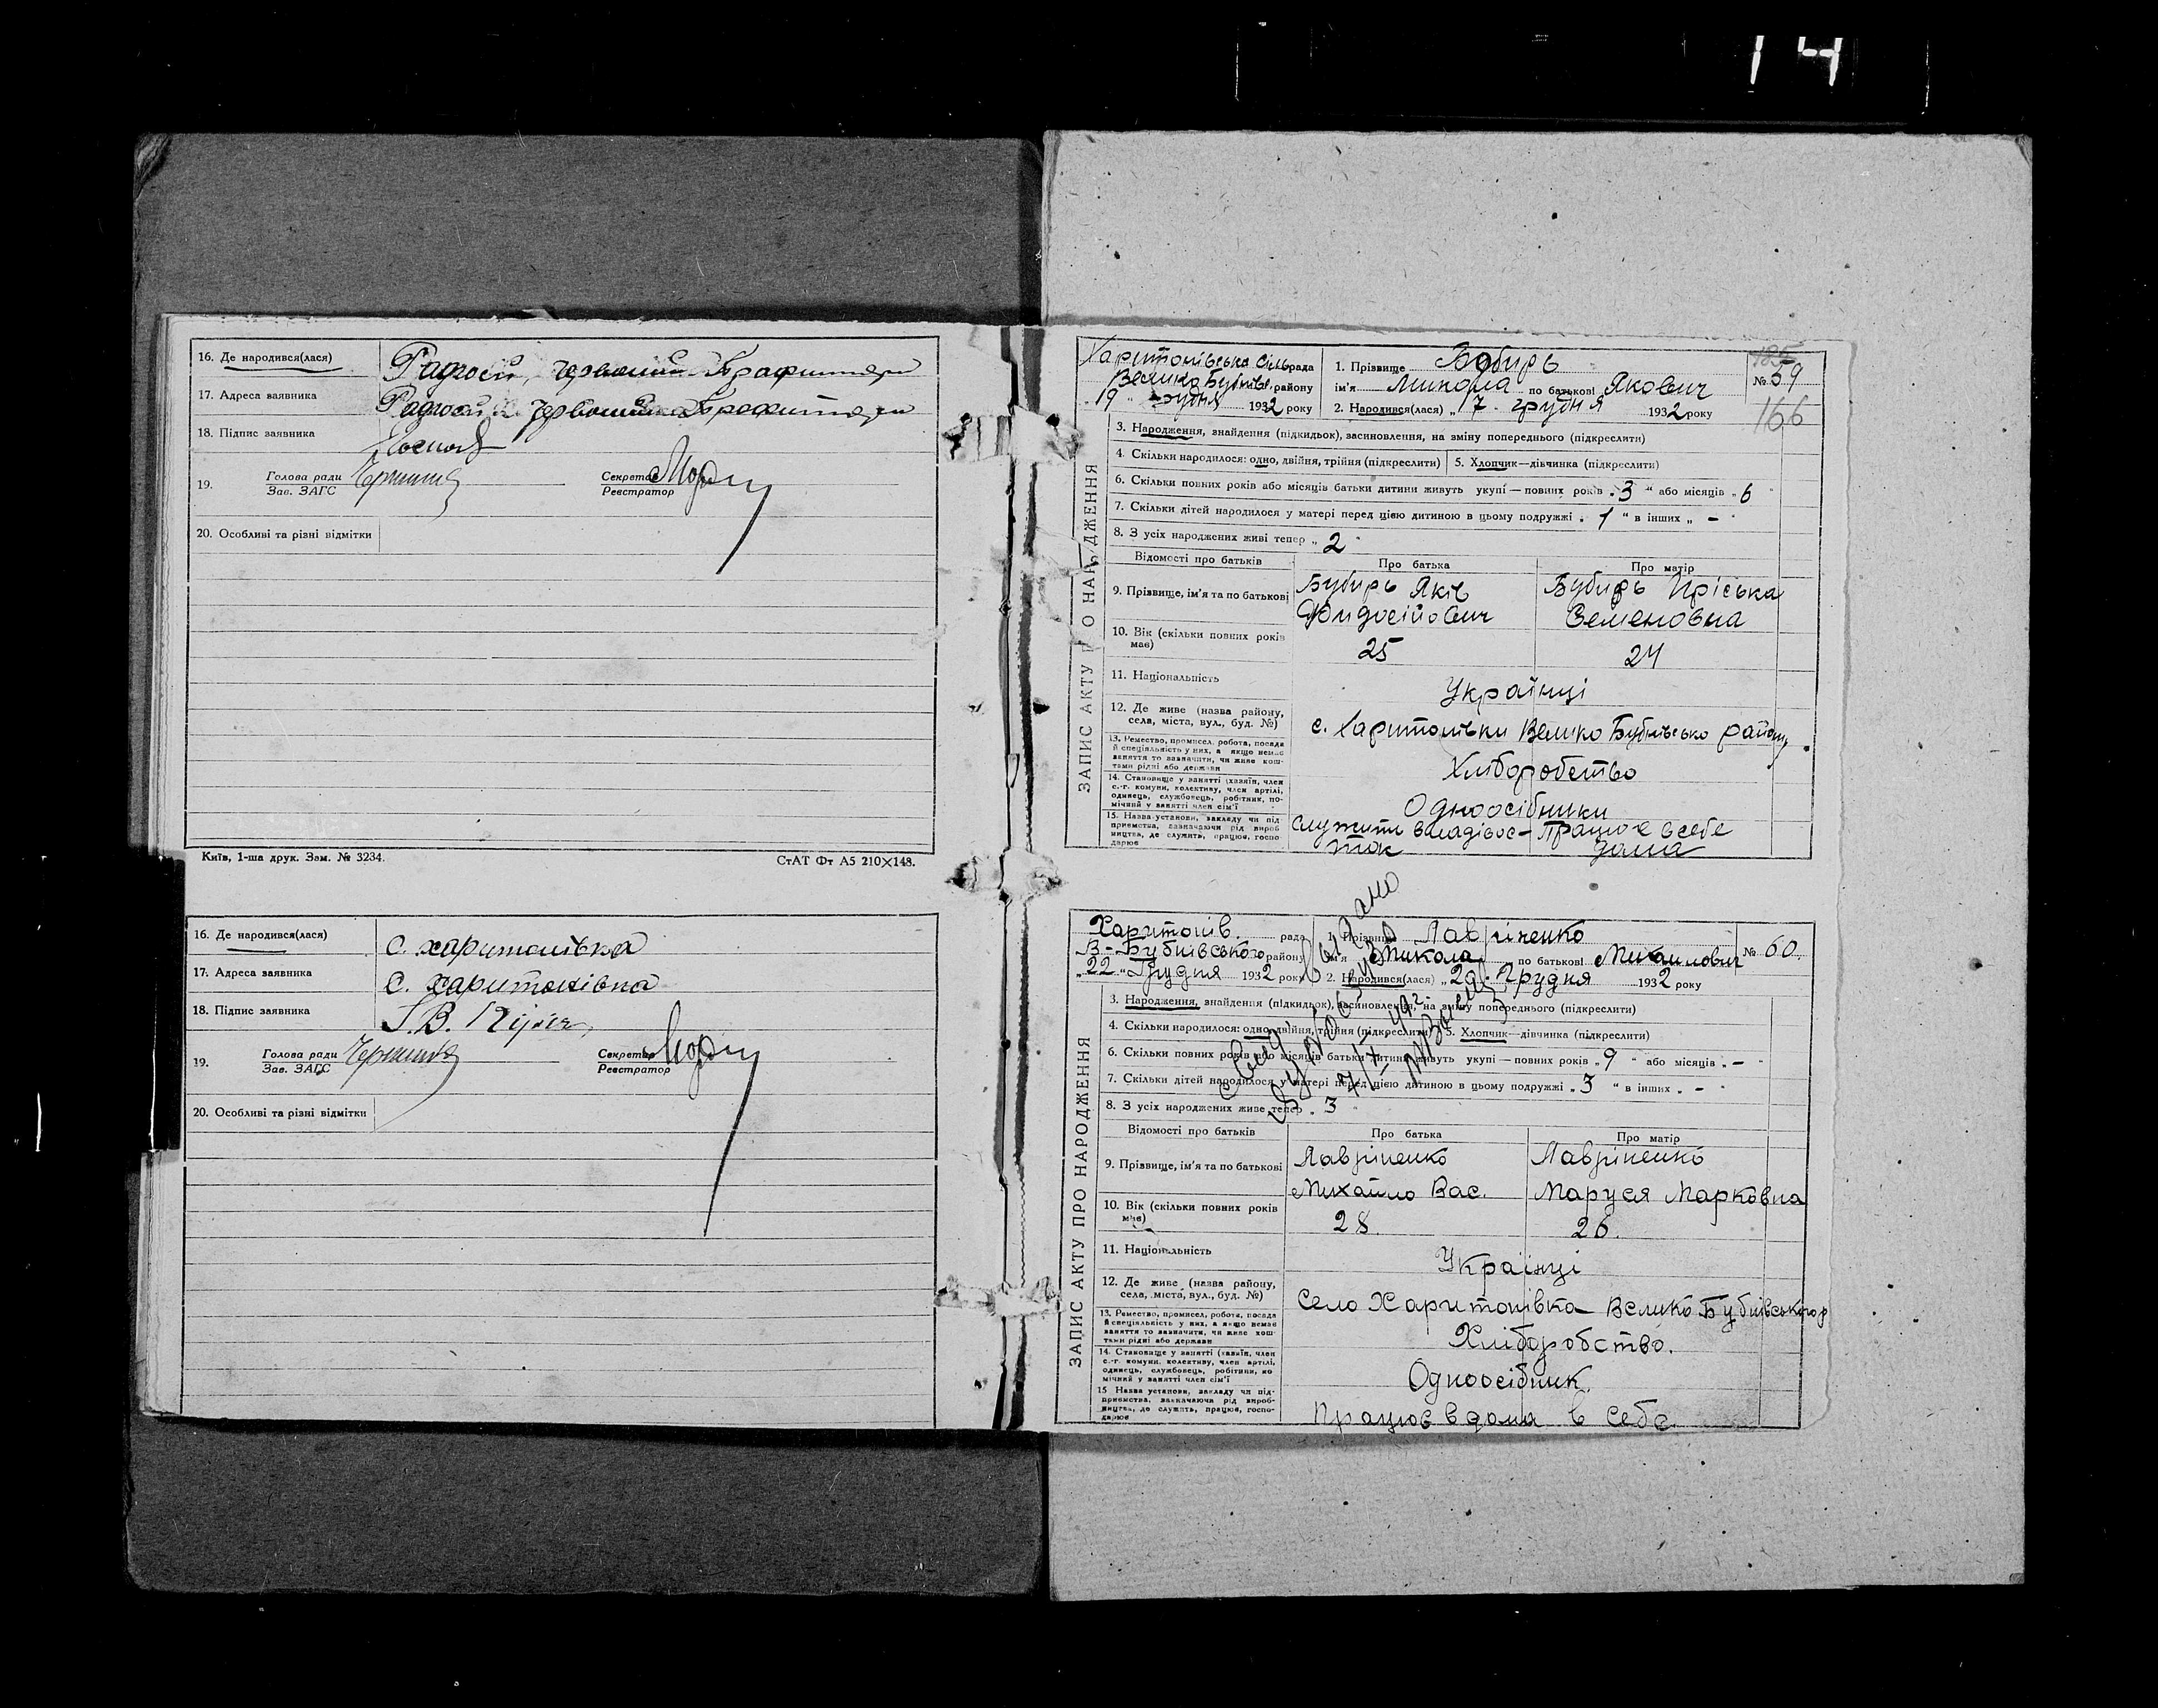 14
16. Де народився(лася)
17. Адреса заявника
18. Підпис заявника
19. Голова ради Секретар
Зав. ЗАГС Реєстратор
20. Особливі та різні відмітки
Київ, 1-ша друк. Зам. № 3234. СтАТ Фт А5 210×148.
16. Де народився(лася) с. харитонівка
17. Адреса заявника с. харитонівка
18. Підпис заявника
19. Голова ради Секретар
Зав. ЗАГС Реєстратор
20. Особливі та різні відмітки
ЗАПИС АКТУ ПРО НАРОДЖЕННЯ
Харитонівська Сільрада
Велико Бубнівс. району
19 грудня 1932 року
1. Прізвище Бобирь
ім'я Микола по батькові Якович
2. Народився(лася) „17 грудня 1932 року
№ 59
166
3. Народження, знайдення (підкидьок), засиновлення, на зміну попереднього (підкреслити)
4. Скільки народилося: одно, двійня, трійня (підкреслити) 5. Хлопчик—дівчинка (підкреслити)
6. Скільки повних років або місяців батьки дитини живуть укупі — повних років „3“ або місяців „6“
7. Скільки дітей народилося у матері перед цією дитиною в цьому подружжі „1“ в інших „–“
8. З усіх народжених живі тепер „2“
Відомості про батьків Про батька Про матір
9. Прізвище, ім'я та по батькові Бубирь Яків Бубирь Пріська
Фидосійович Семеновна
10. Вік (скільки повних років має) 25 24
11. Національність Українці
12. Де живе (назва району, села, міста, вул., буд. №) с. Харитонівки Велико Бубнівсько району
13. Ремество, промисел, робота, посада й спеціальність у них, а якщо немає заняття то зазначити, чи живе коштами рідні або держави Хліборобство
14. Становище у занятті (хазяїн, член с.-г. комуни, колективу, член артілі, одинець, службовець, робітник, помічний у занятті член сім'ї Одноосібники
15. Назва установи, закладу чи підприємства, зазначаючи рід виробництва, де служить, працює, господарює
Працює всебе
дома
ЗАПИС АКТУ ПРО НАРОДЖЕННЯ
Харитонів. рада
В-Бубнівського району
„22“ Грудня 1932 року
1. Прізвище Лавріненко
ім'я Микола по батькові Михайлович
2. Народився(лася) „20 Грудня 1932 року
№ 60.
3. Народження, знайдення (підкидьок), засиновлення, на зміну попереднього (підкреслити)
4. Скільки народилося: одно, двійня, трійня (підкреслити) 5. Хлопчик—дівчинка (підкреслити)
6. Скільки повних років або місяців батьки дитини живуть укупі — повних років „9“ або місяців „–“
7. Скільки дітей народилося у матері перед цією дитиною в цьому подружжі „3“ в інших „–“
8. З усіх народжених живе тепер „3
Відомості про батьків Про батька Про матір
9. Прізвище, ім'я та по батькові Лавріненко Лавріненко
Михайло Вас. Маруся Марковна
10. Вік (скільки повних років має) 28. 26.
11. Національність Українці
12. Де живе (назва району, села, міста, вул., буд. №) Село Харитонівка Велико Бубнівського р
13. Ремество, промисел, робота, посада й спеціальність у них, а якщо немає заняття то зазначити, чи живе коштами рідні або держави Хліборобство.
14. Становище у занятті (хазяїн, член с.-г. комуни, колективу, член артілі, одинець, службовець, робітник, помічний у занятті член сім'ї Одноосібник.
15 Назва установи, закладу чи підприємства, зазначаючи рід виробництва, де служить, працює, господарює Працює вдома в себе